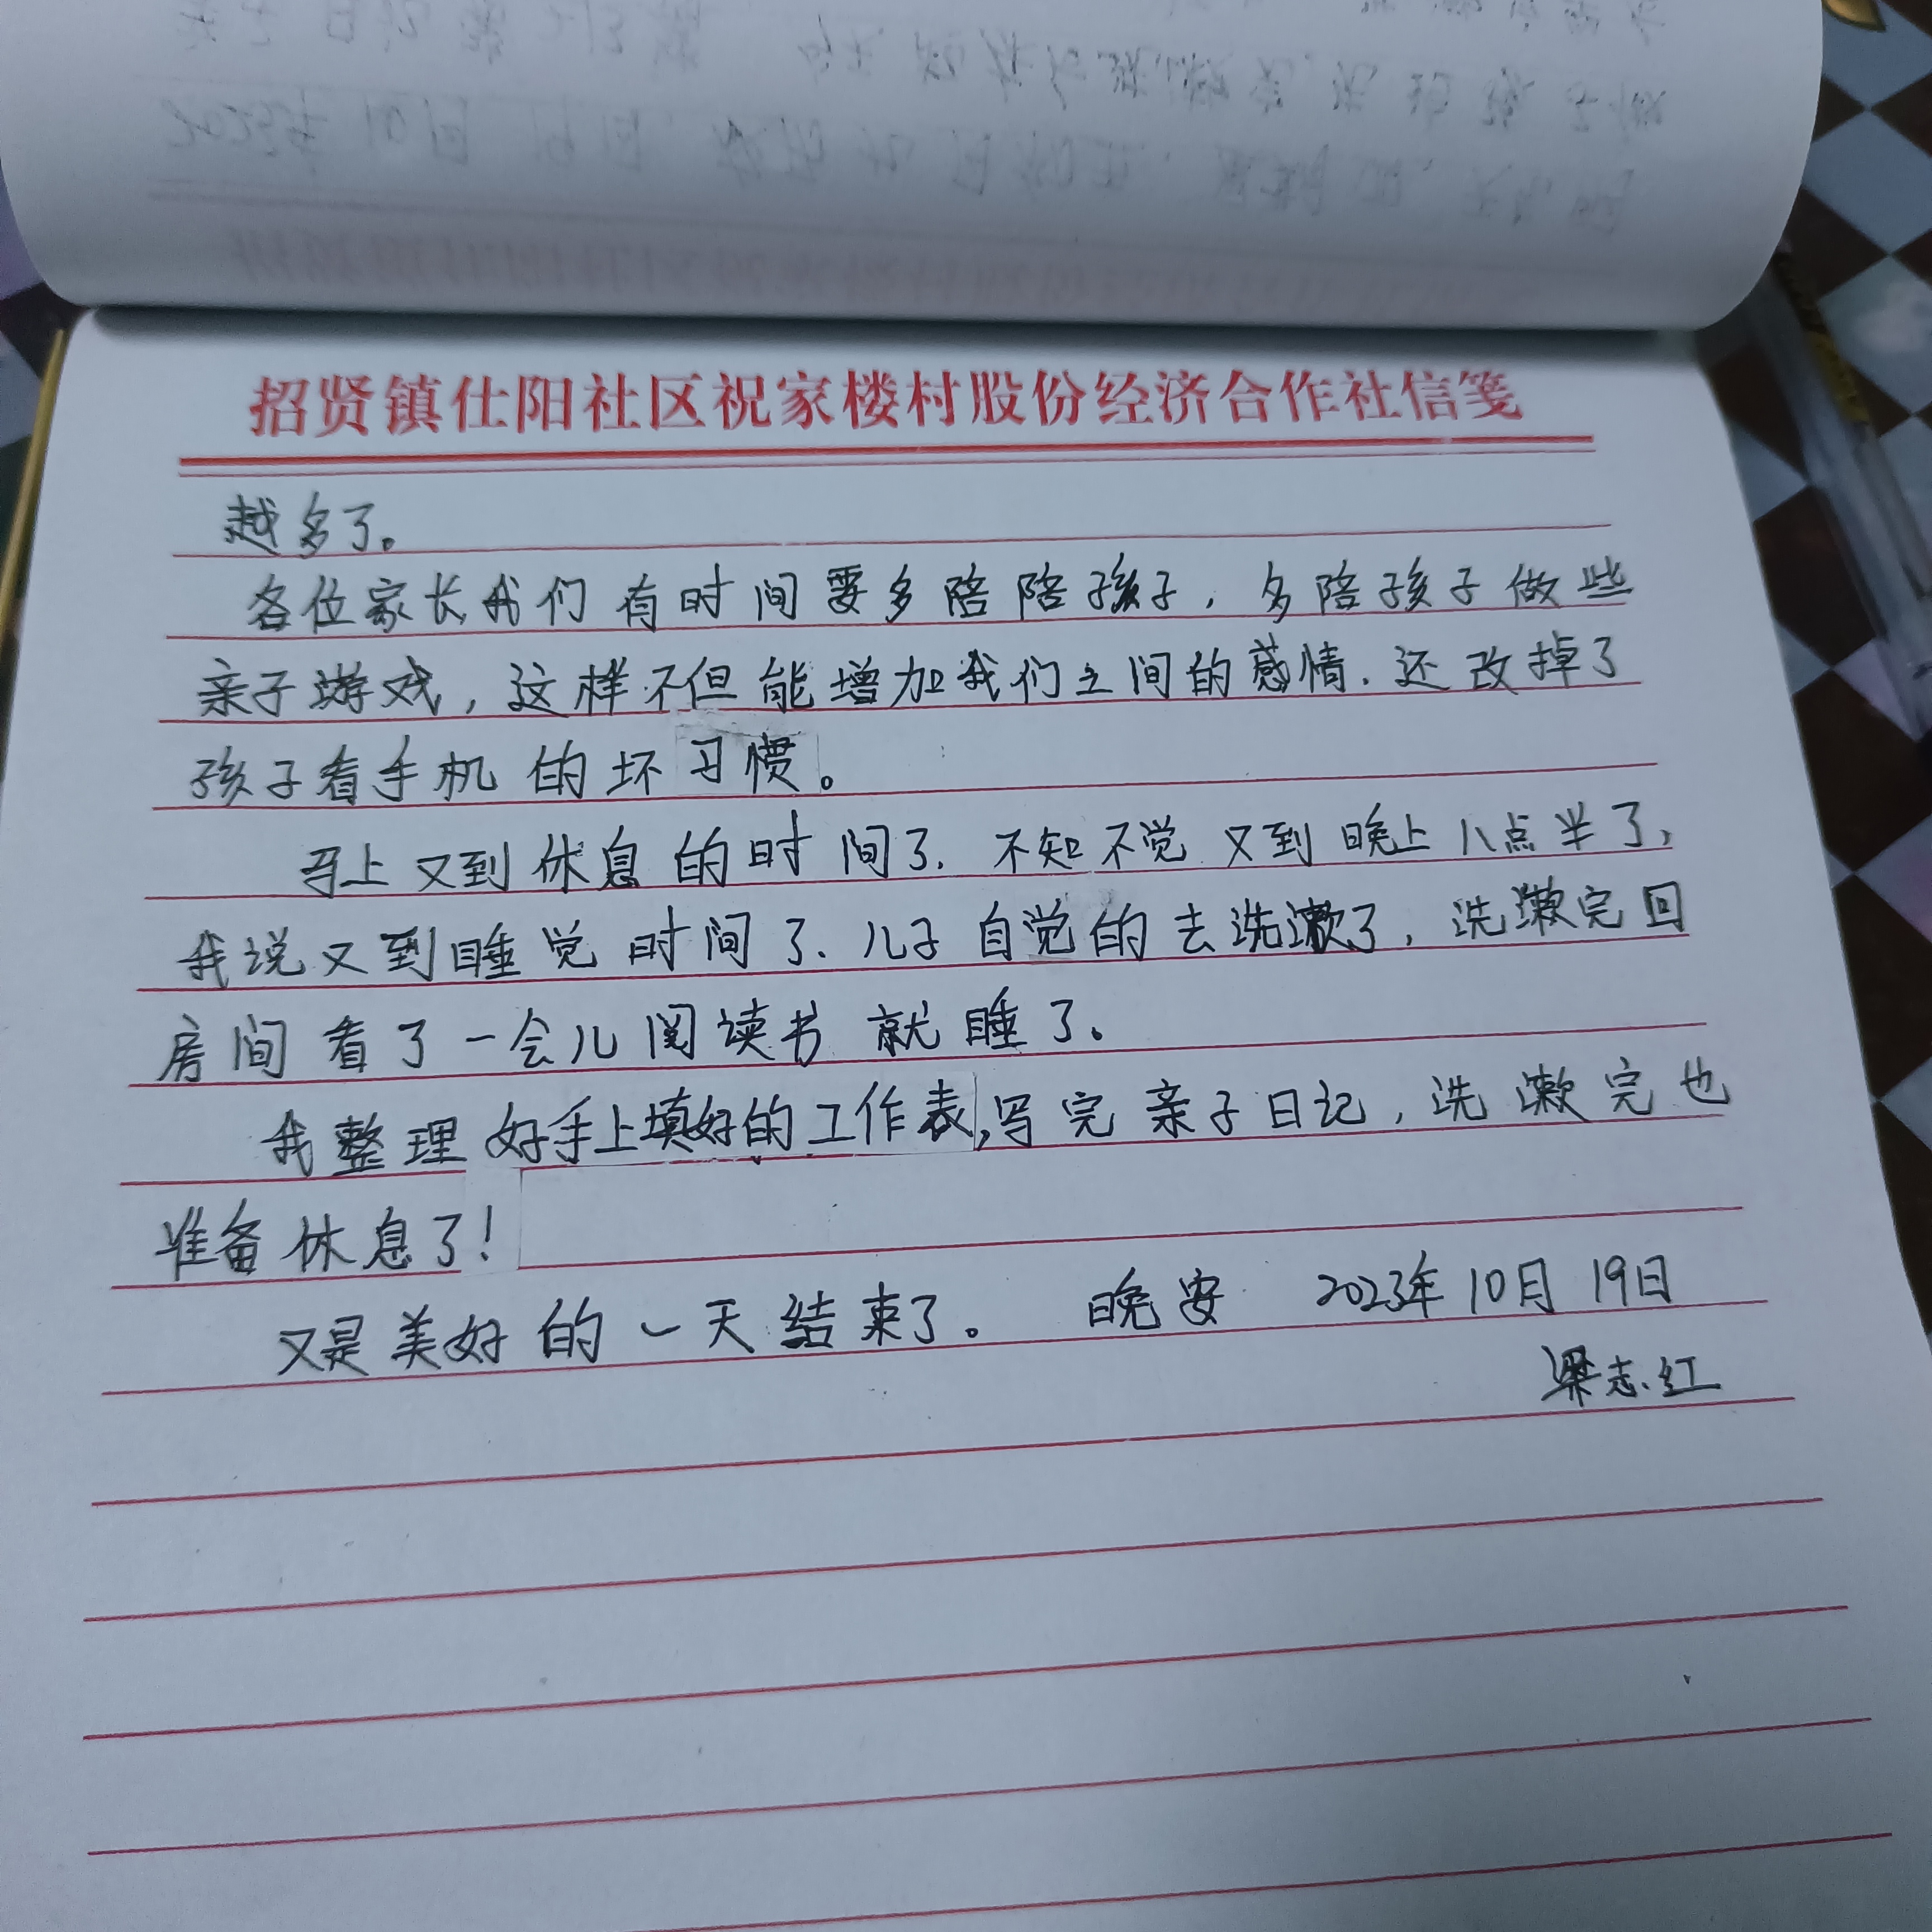 招贤镇仕阳社区祝家楼村股份经济合作社信笺
越多了。
各位家长我们有时间要多陪陪孩子，多陪孩子做些
亲子游戏，这样不但能增加我们之间的感情.还改掉了
孩子看手机的坏习惯。
马上又到休息的时间了.不知不觉又到晚上八点半了，
我说又到睡觉时间了.儿子自觉的去洗漱了，洗漱完回
房间看了一会儿阅读书就睡了。
我整理好手上填好的工作表，写完亲子日记，洗漱完也
准备休息了！
又是美好的一天结束了。 晚安 2023年10月19日
梁志红